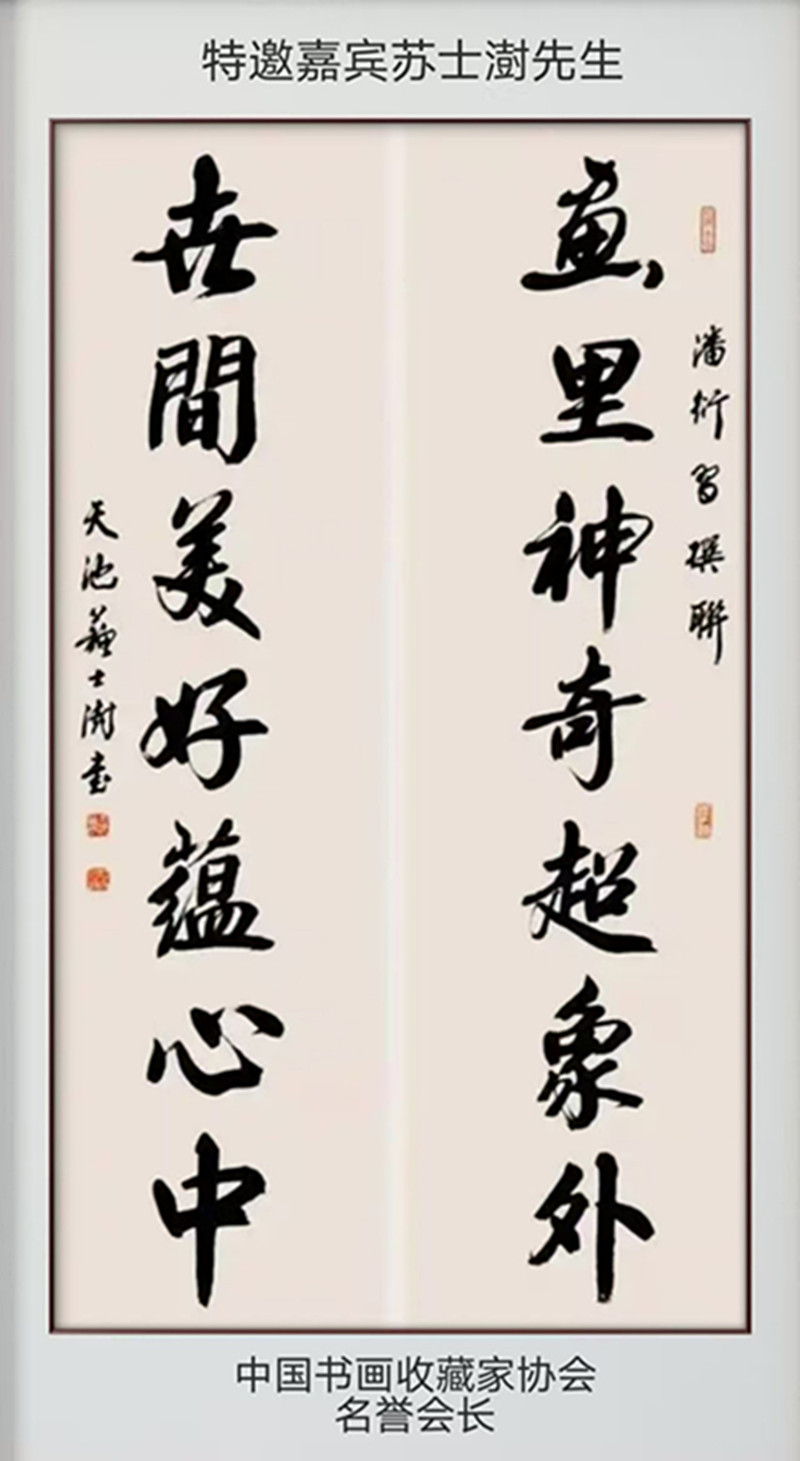 特邀嘉宾苏士澍先生
潘衍習撰聯
畫里神奇超象外
世間美好蘊心中
天池蘇士澍書
中国书画收藏家协会
名誉会长